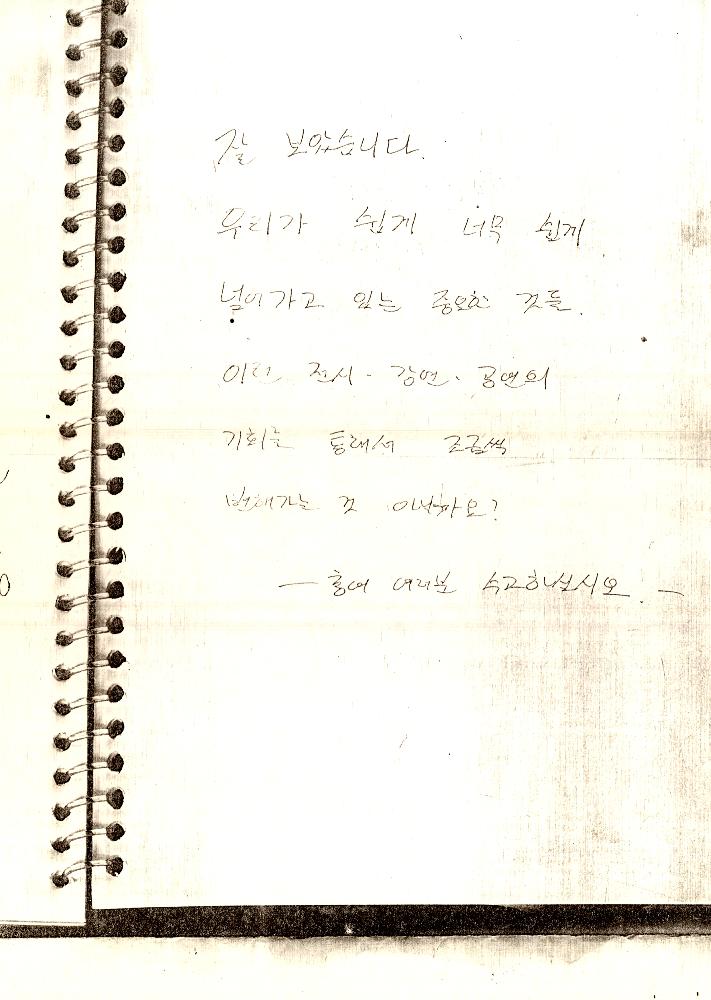 잘 보았습니다.
우리가 쉽게 너무 쉽게
넘어가고 있는 중요한 것들.
이런 전시·강연·공연의
기회를 통해서 조금씩
변해가는 것 아닐까요?
여러분 수고하십시오. —